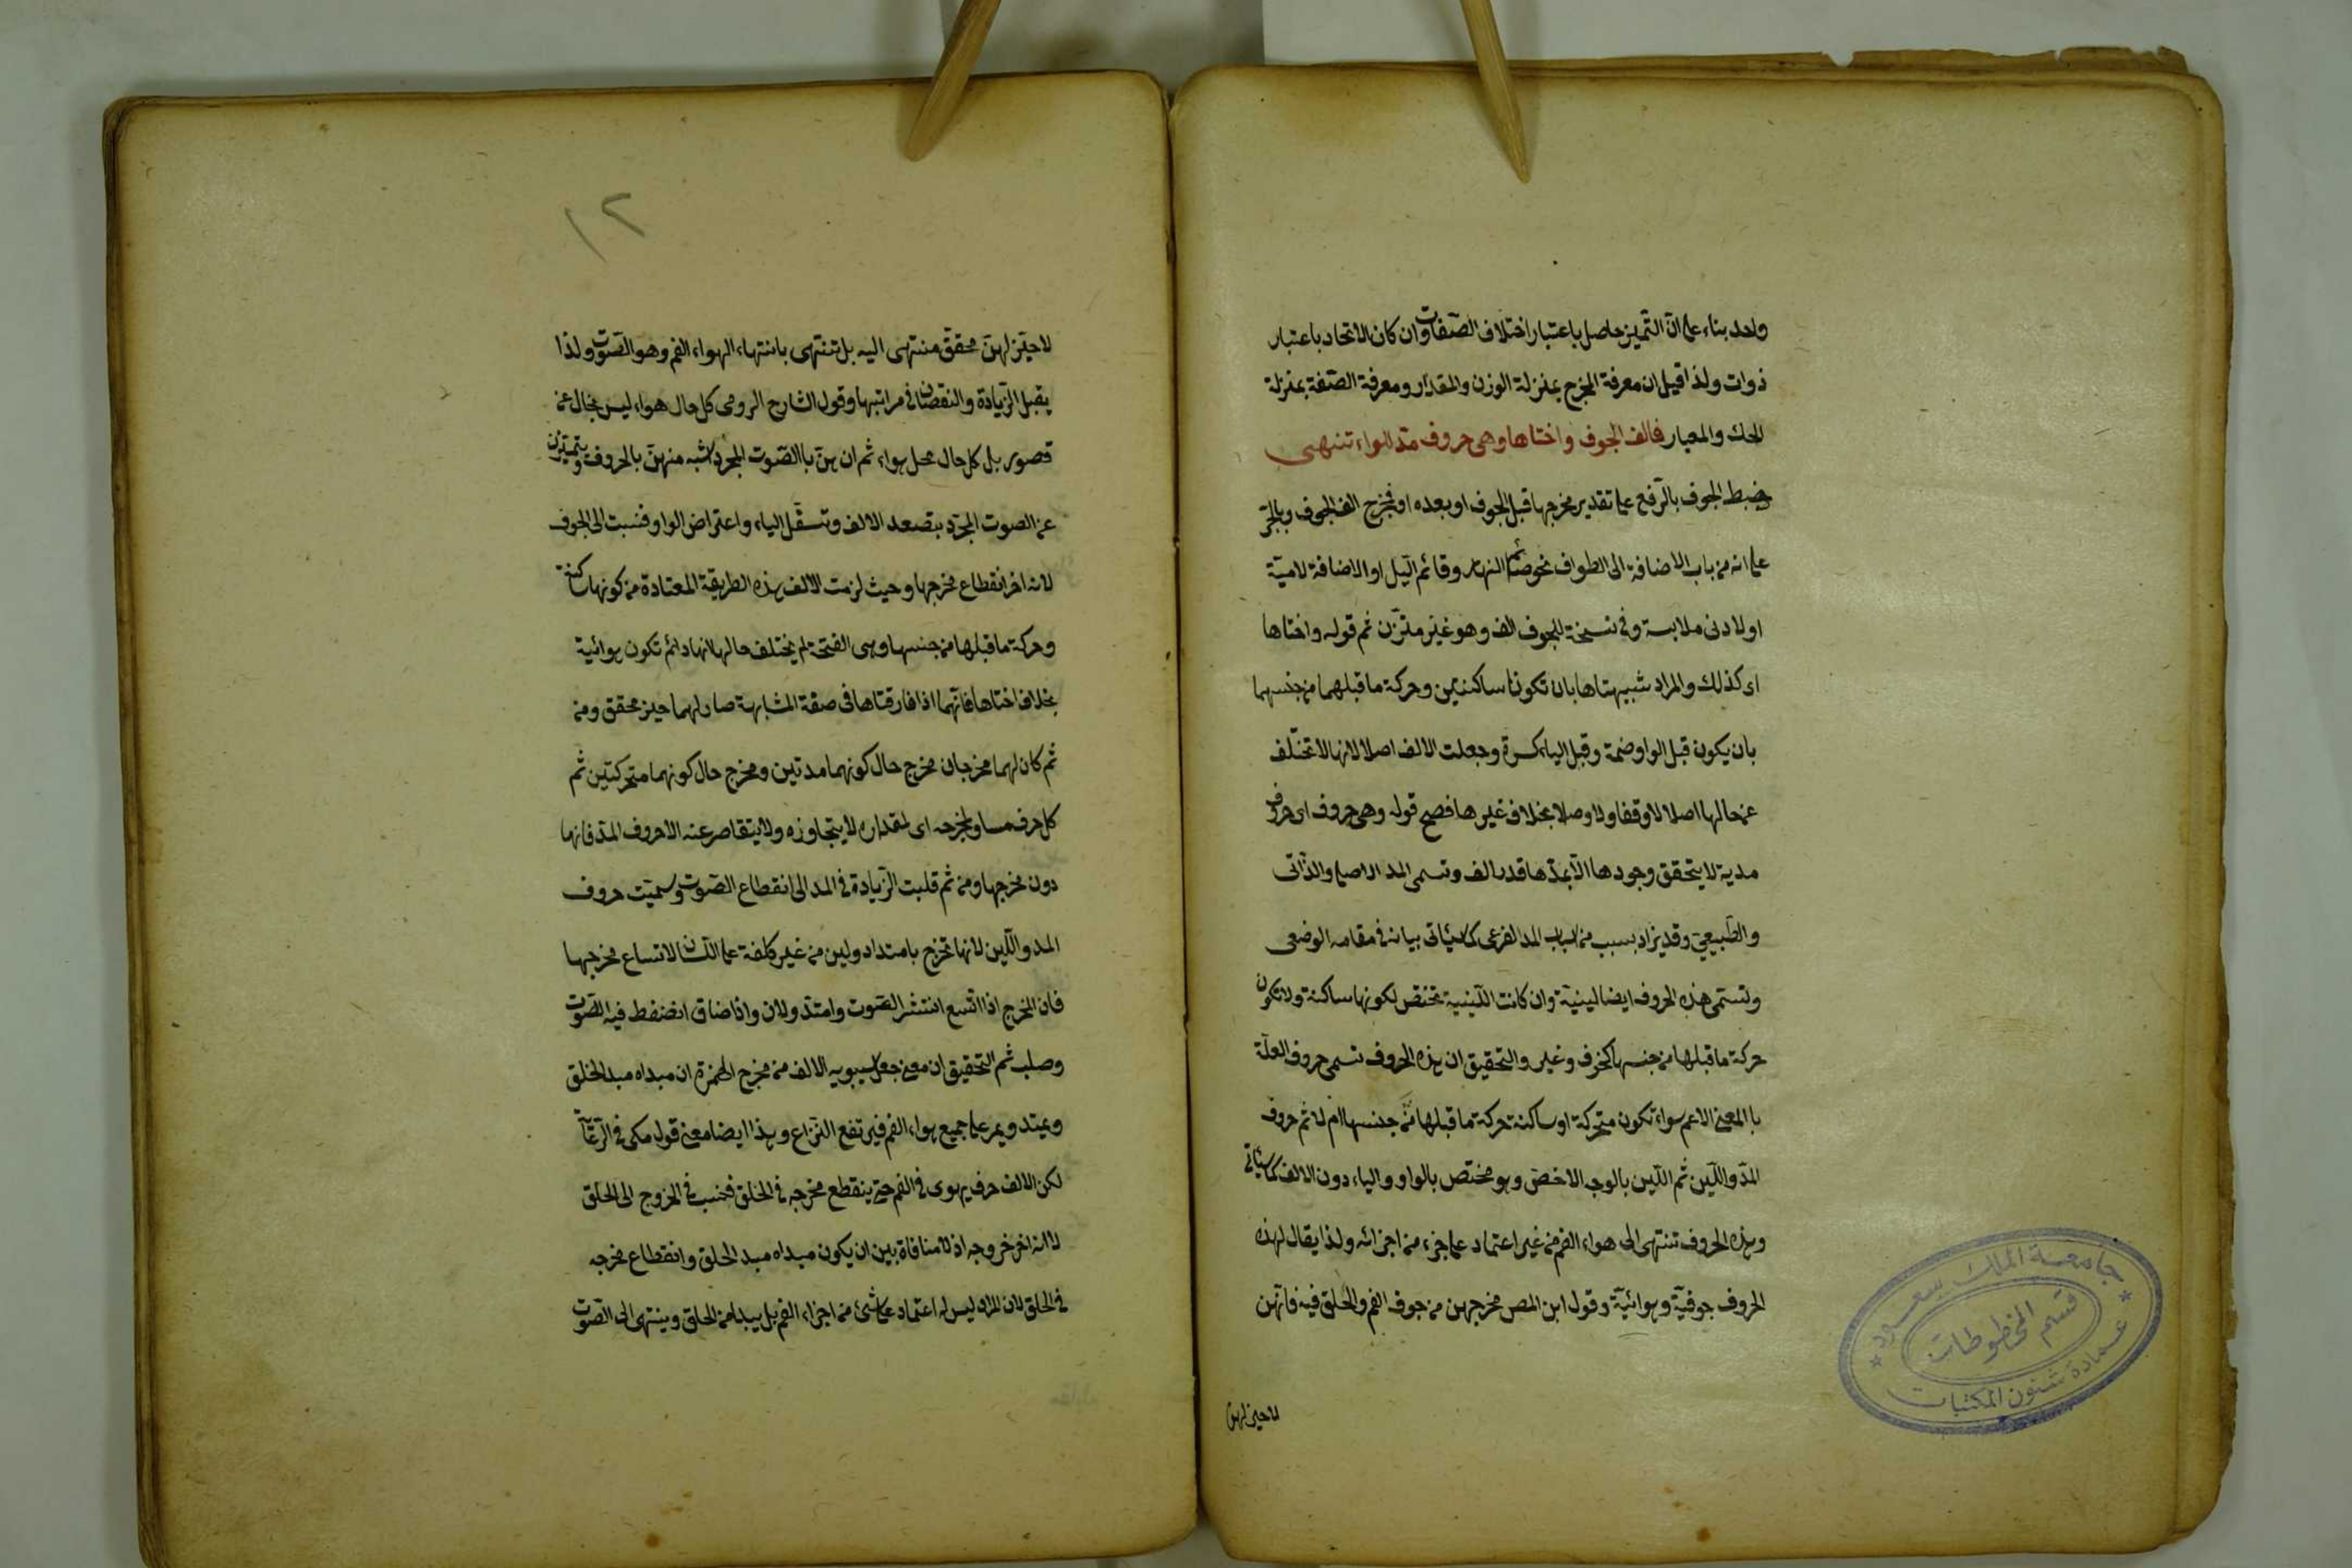 واحد بناء على ان التمييز حاصل باعتبار اختلاف الصفات وان كان الاتحاد باعتبار
ذوات ولذا قيل ان معرفة المخرج بمنزلة الوزن والمقدار ومعرفة الصفة بمنزلة
المحك والمعيار فالف الجوف واختاها وهي حروف مد للهواء تنتهي
ضبط الجوف بالرفع على تقدير مخرجها قبل الجوف او بعده او فمخرج الف الجوف وبالجر
على انه من باب الاضافة الى الظرف نحو صائم النهار وقائم الليل او الاضافة لامية
او لادنى ملابسة وفي نسخة للجوف الف وهو غير متزن ثم قوله واختاها
اى كذلك والمراد شبيهتاها بان تكونا ساكنتين وحركة ما قبلهما من جنسهما
بان يكون قبل الواو ضمة وقبل الياء كسرة وجعلت الالف اصلا لانها لا تختلف
عن حالها اصلا لا وقفا ولا وصلا بخلاف غيرها فصح قوله وهي حروف اى حروف
مدية لا يتحقق وجودها الا بمدها قدر الف وتسمى المد الاصلي والذاتي
والطبيعي وقد يزاد بسبب من اسباب المد الفرعي كما سيأتي بيانه في مقامه الوضعي
وتسمى هذه الحروف ايضا لينية وان كانت اللينية تختص لكونها ساكنة ولا تكون
حركة ما قبلها من جنسها كخوف وغير والتحقيق ان هذه الحروف تسمى حروف العلة
با المعنى الاعم سواء تكون متحركة او ساكنة حركة ما قبلها من جنسها ام لا ثم حروف
المد واللين ثم اللين بالوجه الاخص وهو مختص بالواو والياء دون الالف كما سيأتي
وهذه الحروف تنتهى الى هواء الفم من غير اعتماد على جزء من اجزائه ولذا يقال لهذه
الحروف جوفية وهوائية وقول ابن المص مخرجهن من جوف الفم والحلق فيه فانهن
لا حيز لهن
جامعة الملك سعود
قسم المخطوطات
عمادة شئون المكتبات
١٢
لا حيز لهن محقق منتهى اليه بل تنتهى بانتهاء الهواء الفم وهو الصوت ولذا
يقبل الزيادة والنقصان في مراتبها وقول الشارح الرومى كل حال هواء ليس بخال عن
قصور بل كل حال محل هواء ثم ان هن باالصوت المجرد اشبه منهن بالحروف ويتميزن
عن الصوت المجرد بتصعد الالف وتسفل الياء واعتراض الواو فنسبت الى الجوف
لانه اخر انقطاع مخرجها وحيث لزمت الالف هذه الطريقة المعتادة من كونها ساكنة
وحركة ما قبلها من جنسها وهى الفتحة لم يختلف حالها لانها دائم تكون هوائية
بخلاف اختاها فانهما اذا فارقتاها فى صفة المشابهة صار لهما حيز محقق ومن
ثم كان لهما مخرجان مخرج حال كونهما مدتين ومخرج حال كونهما متحركتين ثم
كل حرف مساو لمخرجه اى لمقداره لا يتجاوزه ولا يتقاصر عنه الا حروف المد فانها
دون مخرجها ومن ثم قلبت الزيادة في المد الى انقطاع الصوت وسميت حروف
المد واللين لانها تخرج بامتداد ولين من غير كلفة على اللسان لاتساع مخرجها
فان المخرج اذا اتسع انتشر الصوت وامتد ولان واذا ضاق انضغط فيه الصوت
وصلب ثم التحقيق ان معنى جعل سيبويه الالف من مخرج الهمزة ان مبداه مبد الحلق
ويمتد ويمر على جميع هواء الفم فيرتفع النزاع وهذا ايضا معنى قول مكى في الرعاية
لكن الالف حرف يهوى في الفم حتى ينقطع مخرجه في الحلق فنسب في الخروج الى الحلق
لانه اخر خروجه اذ لا منافاة بين ان يكون مبداه مبد الحلق وانقطاع مخرجه
في الحلق لان المراد ليس له اعتماد على شئ من اجزاء الفم بل يبدا من الحلق وينتهى الى الصوت